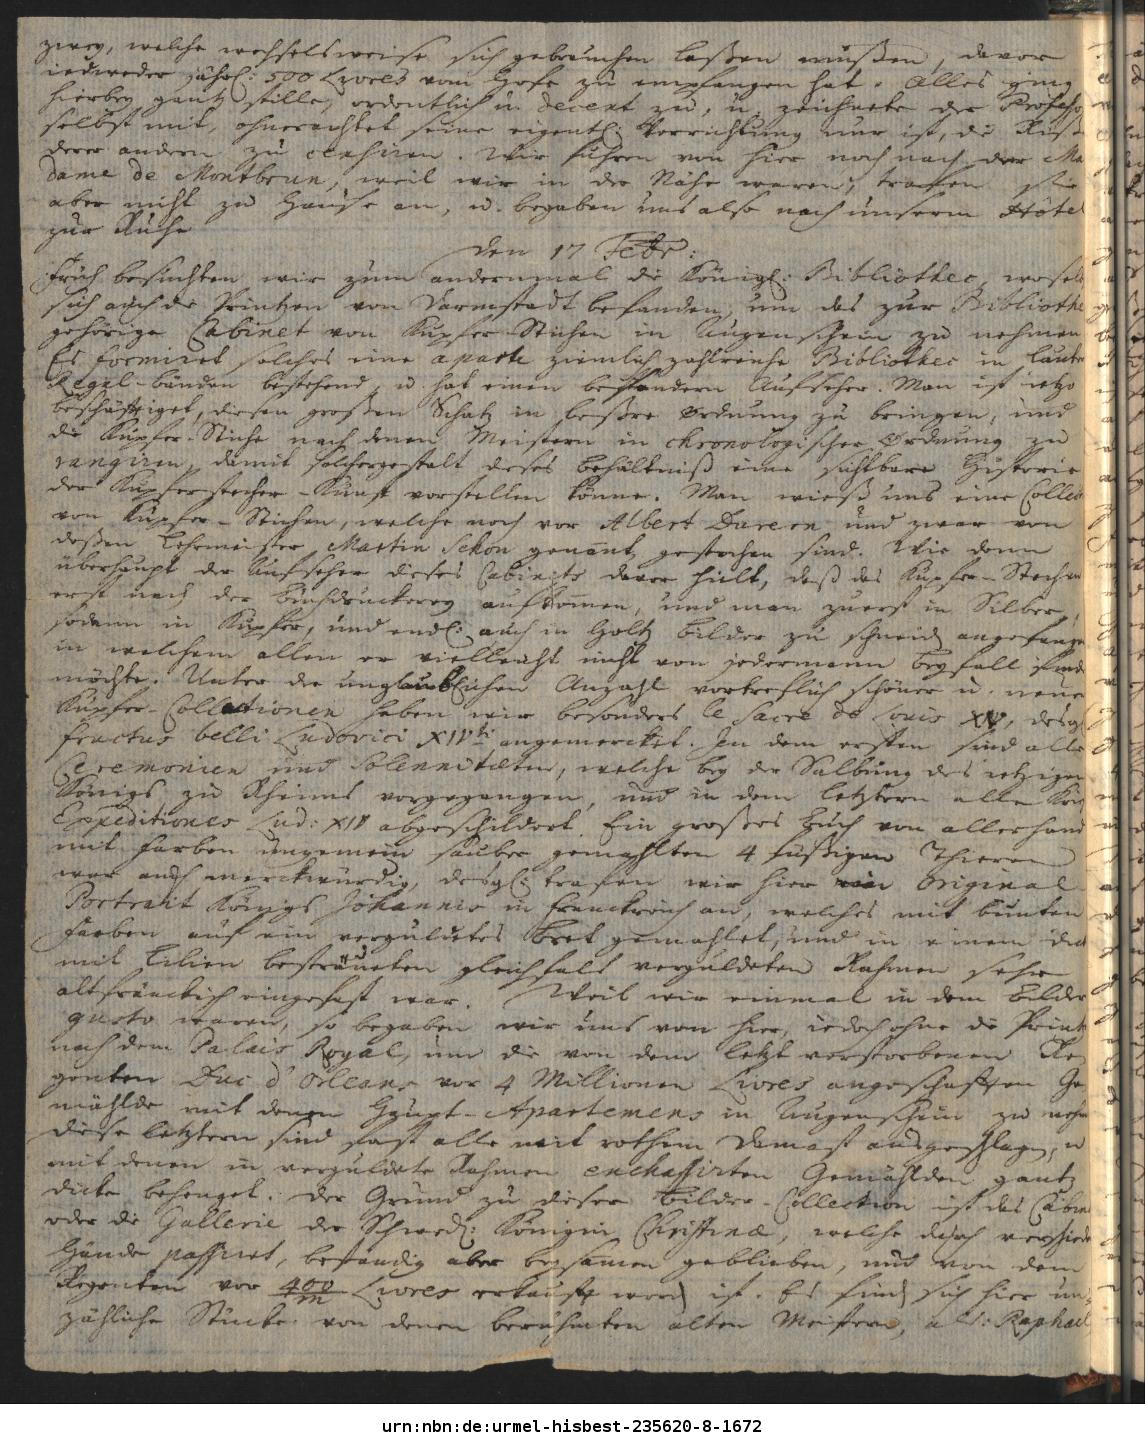 zwey, welche wechselsweise sich gebrauchen laßen müßen, davor
iedweder jährl: 500 Livres vom Hofe zu empfangen hat. Alles ging
hierbey gantz stille, ordentlich u. decent zu, u. zeichnete der Profess
selbst mit, ohnerachtet seine eigentl: Verrichtung nur ist, die Riße
derer andern zu censiren. Wir fuhren von hier noch nach der Ma
dame de Montbrun, weil wir in der Nähe waren, trafen sie
aber nicht zu Hause an, u. begaben uns also nach unserm Hôtel
zur Ruhe
den 17 Febr:
Früh besuchten wir zum andernmal die Königl: Bibliothec, woselb
sich auch die Printzen von Darmstadt befanden, um das zur Bibliothe
gehörige Cabinet von Kupfer-Stichen in Augenschein zu nehmen
Es formiret solches eine aparte ziemlich zahlreiche Bibliothec in lauter
Regal-bänden bestehend, u. hat einen besondern Aufseher. Man ist ietzo
beschäftiget, diesen großen Schatz in beßere Ordnung zu bringen, und
die Kupfer-Stiche nach denen Meistern in chronologischer Ordnung zu
rangiren, damit solchergestalt dieses Behältniß eine sichtbare Historie
der Kupferstecher-Kunst vorstellen könne. Man wieß uns eine Collec
von Kupfer-Stichen, welche noch vor Albert Durern und zwar von
deßen Lehrmeister Martin Schon genant gestochen sind. Wie denn
überhaupt der Aufseher dieses Cabinets davor hielt, daß das Kupfer-Stechen
erst nach der Buchdruckerey aufkommen, und man zuerst in Silber,
sodann in Kupfer, und endl: auch in Holtz Bilder zu schneiden angefangen
in welchem allen er vielleicht nicht von jedermann Beyfall finde
möchte. Unter der unglaublichen Anzahl vortreflich schöner u. neuer
Kupfer-Collectionen haben wir besonders le Sacre de Louis XV, desgl
fructus belli Ludovici XIVti angemercket. In dem ersten sind alle
Ceremonien und Solennitæten, welche bey der Salbung des ietzigen
Königs zu Rheims vorgegangen, und in dem letztern alle Krie
Expeditiones Lud: XIV abgeschildert. Ein großes Buch von allerhand
mit Farben ungemein sauber gemahlten 4 füßigen Thieren
war auch merckwürdig, desgl: trafen wir hier ein Original
Portrait Königs Johannis in Franckreich an, welches mit bunten
Farben auf ein verguldetes Bret gemahlet, und in einem
mit Lilien bestreueten gleichfals verguldeten Rahmen sehr
altfränckisch eingefast war. Weil wir einmal in dem Bilder
gusto waren, so begaben wir uns von hier, iedoch ohne die Print
nach dem Palais Royal, um die von dem letzt verstorbenen Re
genten Duc d'Orleans vor 4 Millionen Livres angeschafften Ge
mählde mit denen Haupt-Apartemens in Augenschein zu nehm
diese letztern sind fast alle mit rothem Damast ausgeschlagen, u
mit denen in verguldete Rahmen enchassirten Gemählden gantz
dicke behenget. Der Grund zu dieser Bilder-Collection ist das Cabine
oder die Gallerie der Schwed: Königin Christinæ, welche durch verschied
Hände passiret, beständig aber beysamen geblieben, und von dem
Regenten vor 400/m Livres erkauft word ist. Es find sich hier un-
zähliche Stücke von denen berühmten alten Meistern, als: Raphael
urn:nbn:de:urmel-hisbest-235620-8-1672